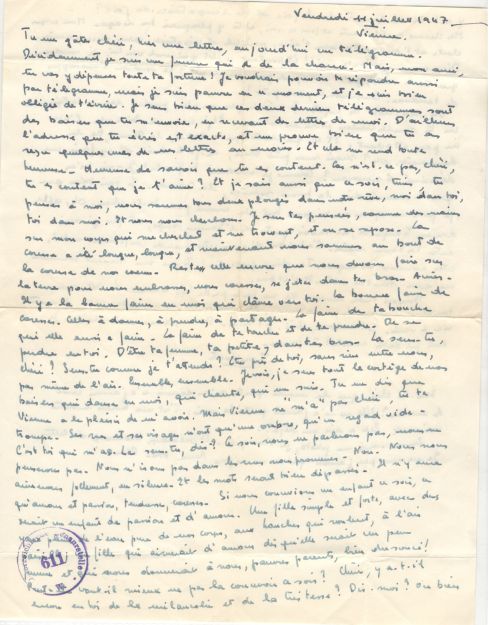 Vendredi 11 juillet 1947
Vienne.
Tu me gâtes chéri, hier une lettre, aujourd'hui un télégramme.
Décidément je suis une femme qui a de la chance. Mais, mon ami,
tu vas y dépenser toute ta fortune! Je voudrais pouvoir te répondre aussi
par télégramme, mais je suis pauvre en ce moment, et je suis bien
obligée de t'écrire. Je sens bien que ces deux derniers télégrammes sont
des baisers que tu m'envoies, en recevant des lettres de moi. D'ailleurs
l'adresse que tu écris est exacte, et me prouve bien que tu as
reçu quelques unes de mes lettres au moins. Et cela me rend toute
heureuse. Heureuse de savoir que tu es content. Car n'est-ce pas, chéri,
tu es content que je t'aime? Et je sais aussi que ce soir, tu
penses à moi, nous sommes tous deux plongés dans notre rêve, moi dans toi,
toi dans moi. Et nous nous cherchons. Je sens tes pensées, comme des mains
sur mon corps qui me cherchent et me trouvent, et on se repose. La
course a été longue, longue, et maintenant nous sommes au bout de
la course de nos coeurs. Reste celle encore que nous devons faire sur
la terre pour nous embrasser, nous caresser, se jeter dans tes bras.
Il y a la bonne faim en moi qui clame vers toi. La bonne faim de
caresses. Celles à donner, à prendre, à partager. La faim de ta bouche
qui elle aussi a faim. La faim de te toucher et de te prendre. De se
perdre en toi. D'être ta femme, ta petite, dans tes bras. La sens-tu,
chéri? Sens-tu comme je t'attends? Etre près de toi, sans rien entre nous,
pas même de l'air. Ensemble, ensemble. Je vois, je sens tout le cortège de nos
baisers qui danse en moi, qui chante, qui me suis. Tu me dis que
Vienne a le plaisir de m'avoir. Mais Vienne ne "m'a" pas chéri, elle te
trompe. Ses rues et ses visages n'ont qu'une ombre, qu'un regard vide.
C'est toi qui m'as. Le sens-tu, dis? Ce soir, nous ne parlerons pas, nous ne
penserons pas. Nous n'irons pas dans les rues nous promener. Non. Nous nous
aimerons follement, en silence. Et les mots seront bien dépassés. Il n'y aura
qu'amour et passion, tendresse, caresses. Si nous concevions un enfant ce soir, ce
serait un enfant de passion et d'amour. Une fille souple et forte, avec des
yeux l'eau pure de nos corps, aux hanches qui roulent, à l'air
fille qui aimerait d'amour dès qu'elle serait un peu
femme et nous donnerait à nous, pauvres parents, bien du souci!
Peut-être vaut-il mieux ne pas la concevoir ce soir? Chéri, y a-t-il
encore en toi de la mélancolie et de la tristesse? Dis-moi? Ou bien
611